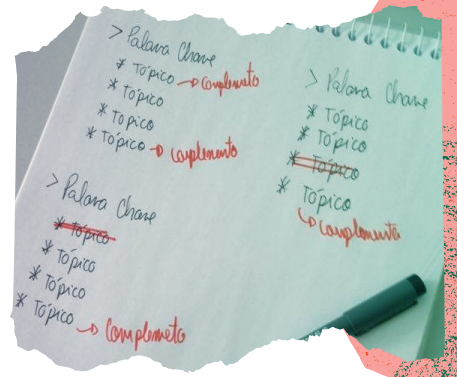 > Palavra Chave
* Tópico → complemento
* Tópico
* Tópico
* Tópico → complemento
> Palavra Chave
* Tópico
* Tópico
* Tópico
* Tópico → Complemeto
> Palavra Chave
* Tópico
* Tópico
* Tópico
* Tópico
↳ complemento